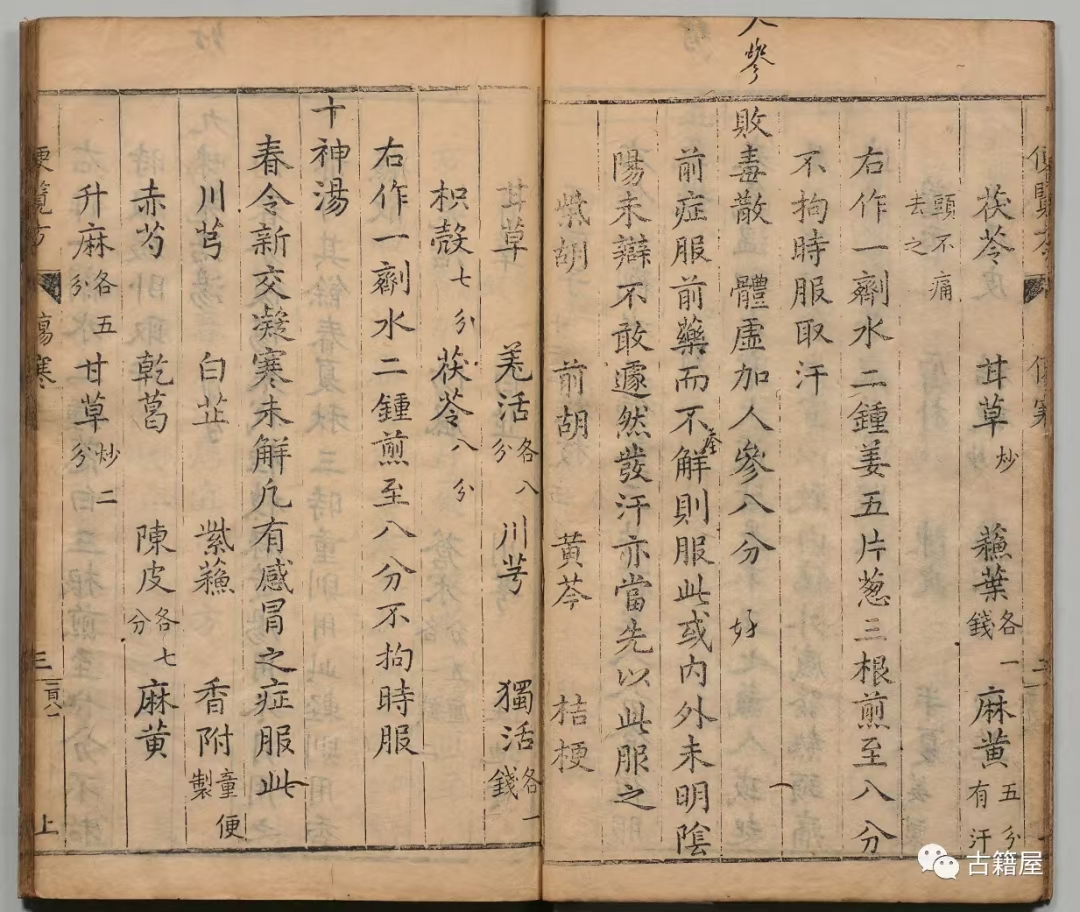 人參
茯苓 甘草炒 蘓葉各一錢 麻黄五分有汗
頭不痛去之
右作一劑水二鍾姜五片葱三根煎至八分
不拘時服取汗
敗毒散 體虛加人參八分 好
前症服前藥而不解則服此或内外未明陰
陽未辯不敢遽然發汗亦當先以此服之
柴胡 前胡 黄芩 桔梗
甘草 羗活各八分 川芎 獨活各一錢
枳殻七分 茯苓八分
右作一劑水二鍾煎至八分不拘時服
十神湯
春令新交凝寒未解凢有感冒之症服此
川芎 白芷 紫蘓 香附童便製
赤芍 乾葛 陳皮各七分 麻黄
升麻各五分 甘草炒二分
便覽方 傷寒 三 上
古籍屋